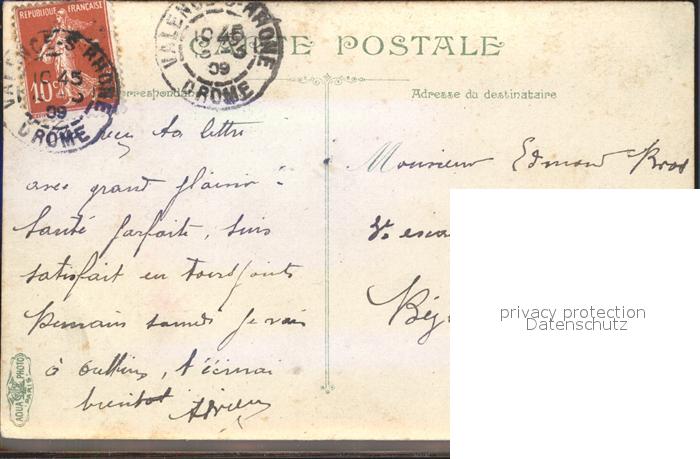 REPUBLIQUE FRANÇAISE
10 c
VALENCE-S-RHONE
10 45
09
DROME
VALENCE-S-RHONE
10 45
09
DROME
CARTE POSTALE
Correspondance
Adresse du destinataire
reçu ta lettre
avec grand plaisir :
Santé parfaite, suis
satisfait en tous points
Demain samedi je vais
à Oullins, t'écrirai
bientôt Adrien
Monsieur Edmond
Bég
AQUA PHOTO
PARIS
privacy protection
Datenschutz